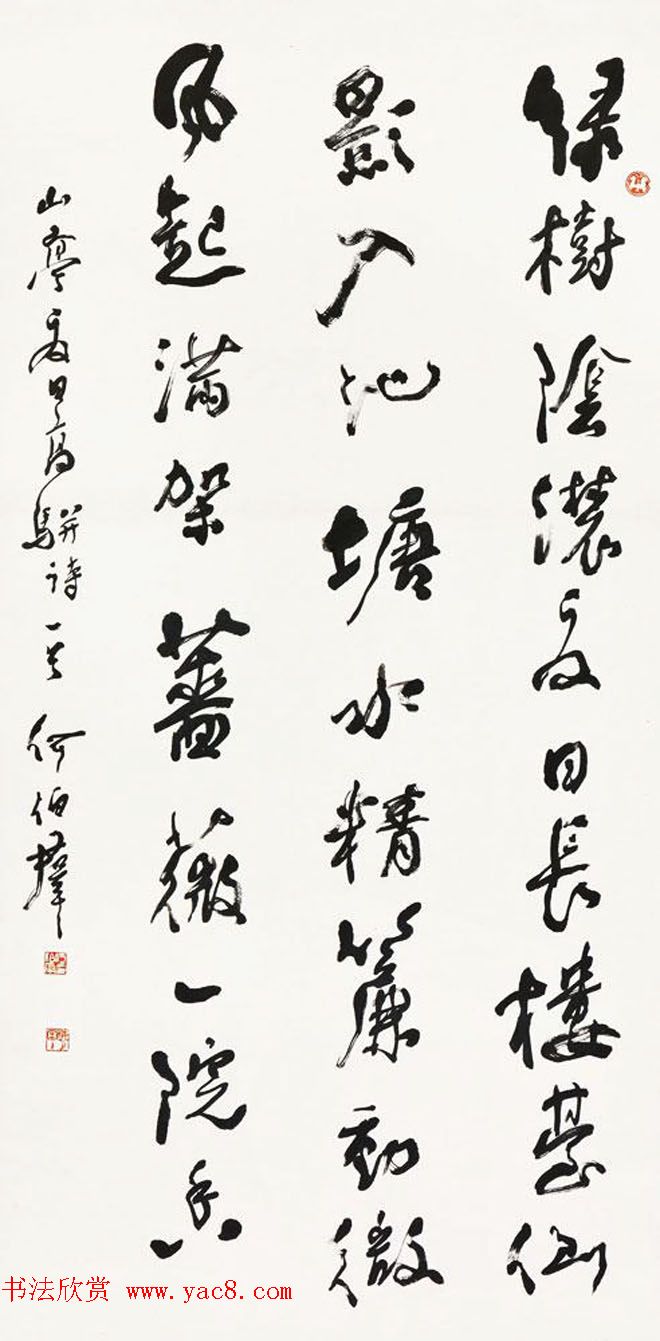 绿樹陰濃夏日長樓臺倒
影入池塘水精簾動微
風起滿架薔薇一院香
山亭夏日高駢詩一首 何伯群
书法欣赏 www.yac8.com